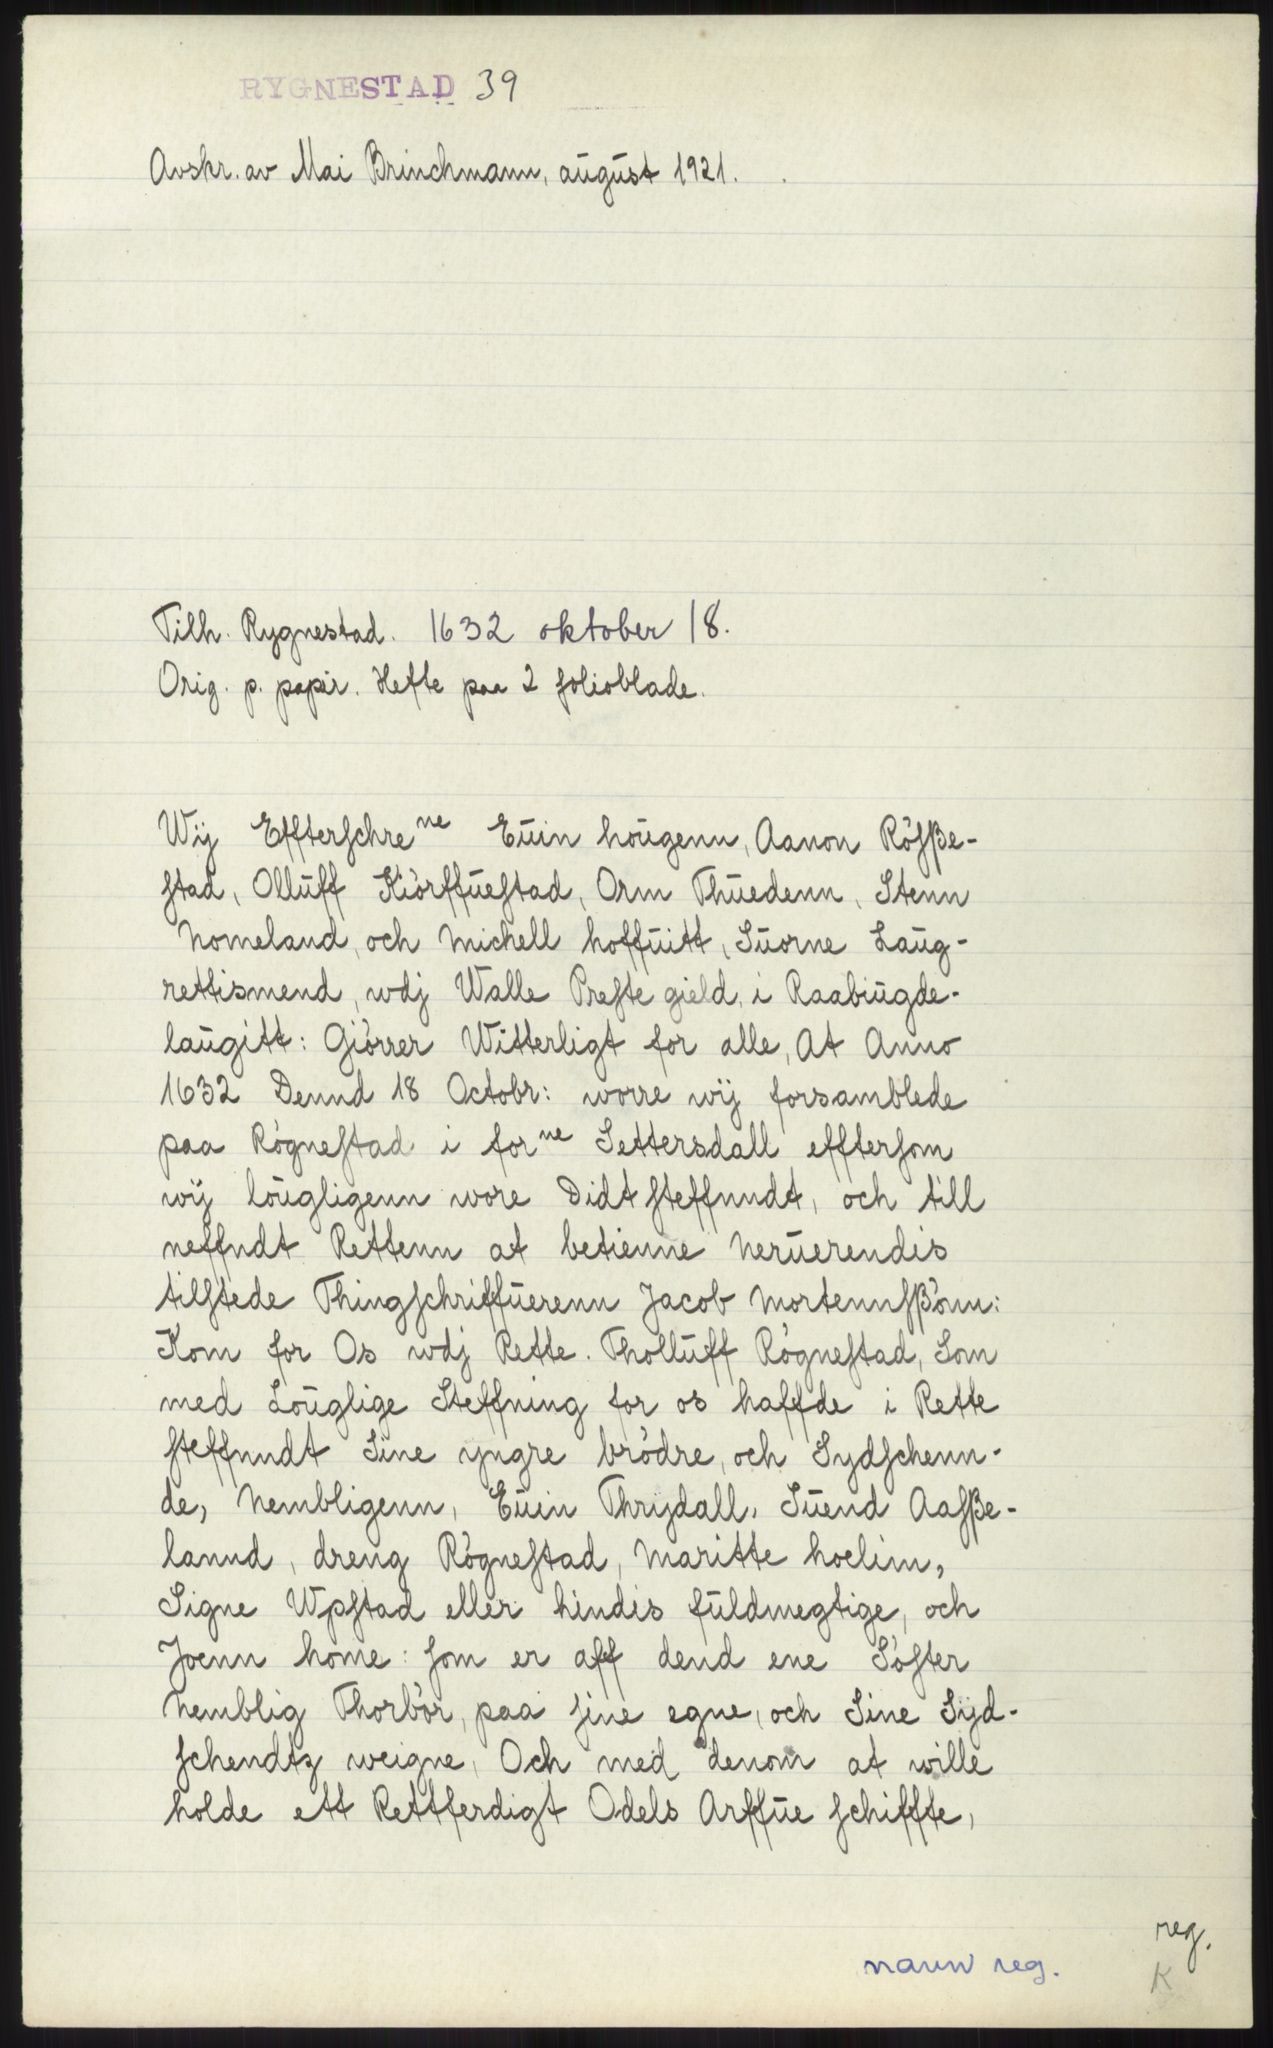 RYGNESTAD 39
Avskr. av Mai Brinchmann, august 1921.
Tilh. Rygnestad. 1632 oktober 18.
Orig. p. papir. Hefte paa 2 folioblade.
Wij Effterſchre ne Euin hougenn, Aanon Röſße-
ſtad, Olluff Kiörffueſtad, Orm Thuedenn, Stenn
Nomeland, och Michell hoffuitt, Suorne Laug-
rettismend, wdj Walle Preſte gield, i Raabiugde-
laugitt: Giörrer Witterligt for alle, At Anno
1632 Dennd 18 Octobr: worre wij forsamblede
paa Rögneſtad i for ne Settersdall effterſom
wij lougligenn wore Didt ſteffnndt, och till
neffndt Rettenn at betienne Neruerendis
tilſtede Thingſchriffuerenn Jacob Mortennſßönn:
Kom for Os wdj Rette. Tholluff Rögneſtad, Som
med Louglige Steffning for os haffde i Rette
ſteffnndt Sine yngre brödre, och Sydſchenn-
de, Nembligenn, Euin Thrydall, Suend Aaſße-
lannd, dreng Rögneſtad, Maritte hoelim,
Signe Wpſtad eller hindis fuldmegtige, och
Joenn home: ſom er aff dend ene Söſter
Nemblig Thorbör, paa ſine egne, och Sine Syd-
ſchendtz weigne, Och med denom at wille
holde ett Rettferdigt Odels Arffue ſchiffte,
reg.
navn reg.
K